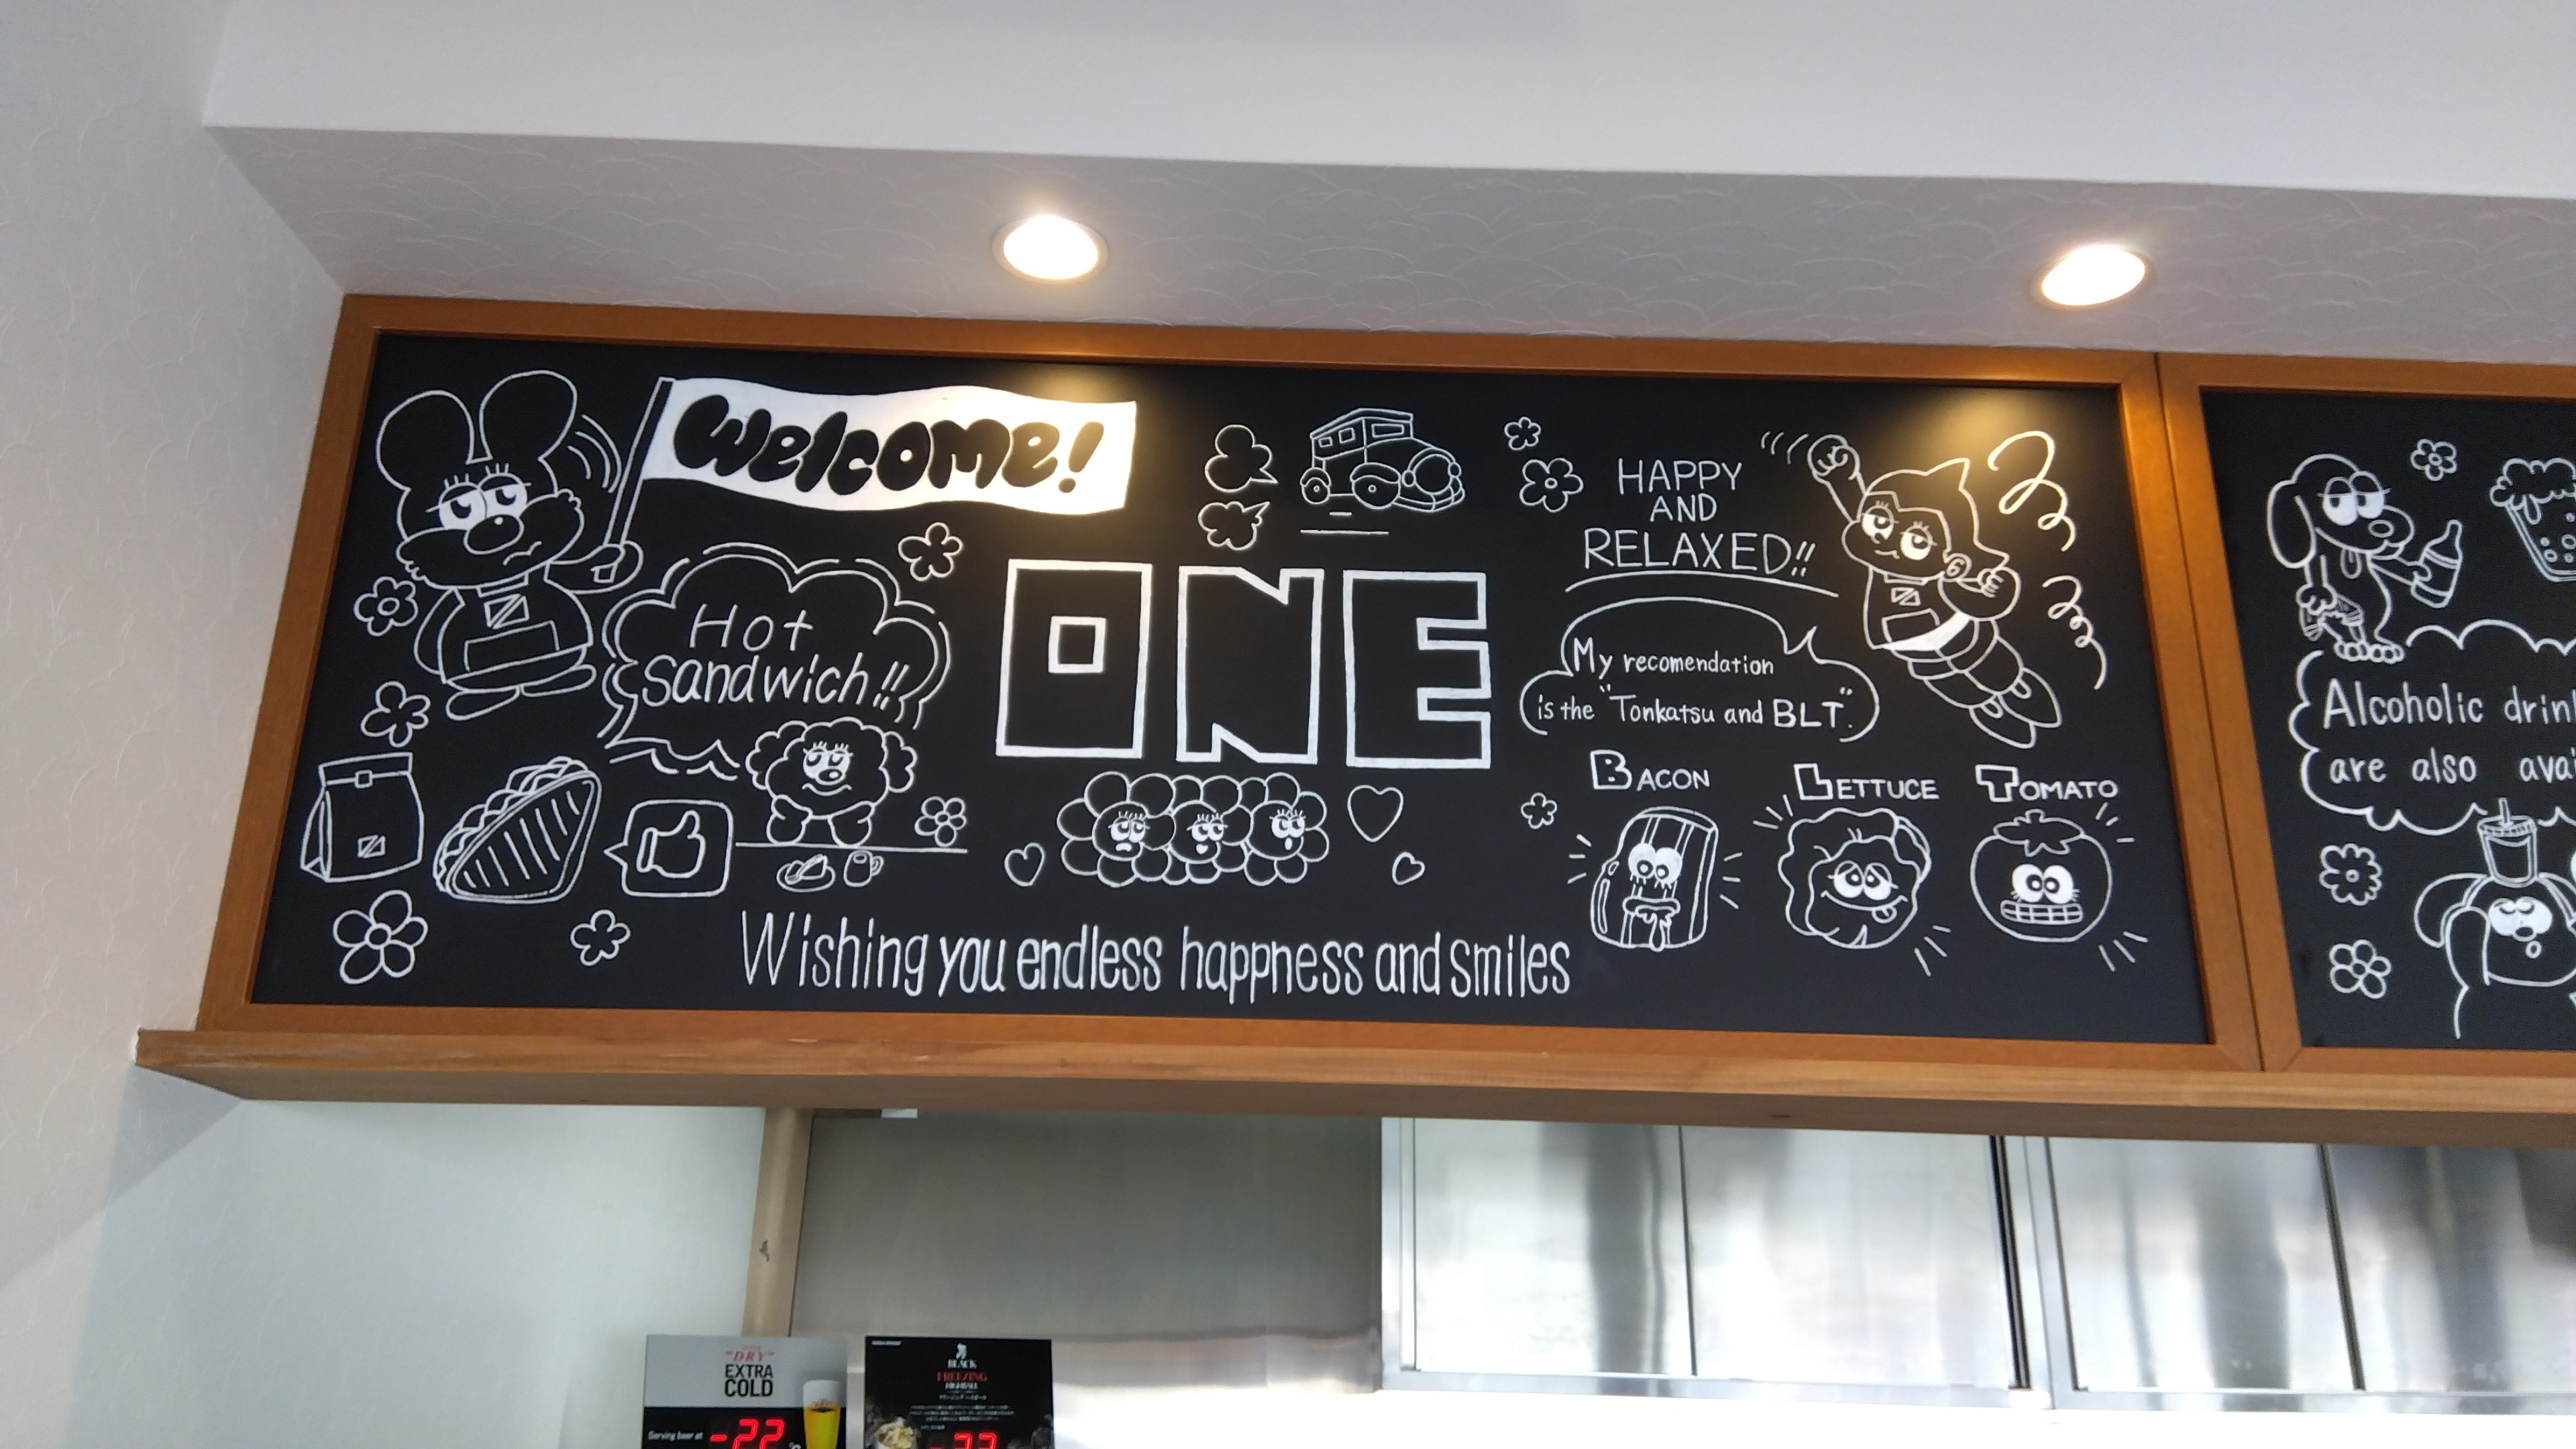 Welcome!
Hot
sandwich!!
ONE
HAPPY
AND
RELAXED!!
My recomendation
is the "Tonkatsu and BLT".
BACON
LETTUCE
TOMATO
Wishing you endless happness and smiles
Alcoholic drin
are also avai
"DRY"
EXTRA
COLD
Serving beer at
-22
BLACK
FREEZING
HIGHBALL